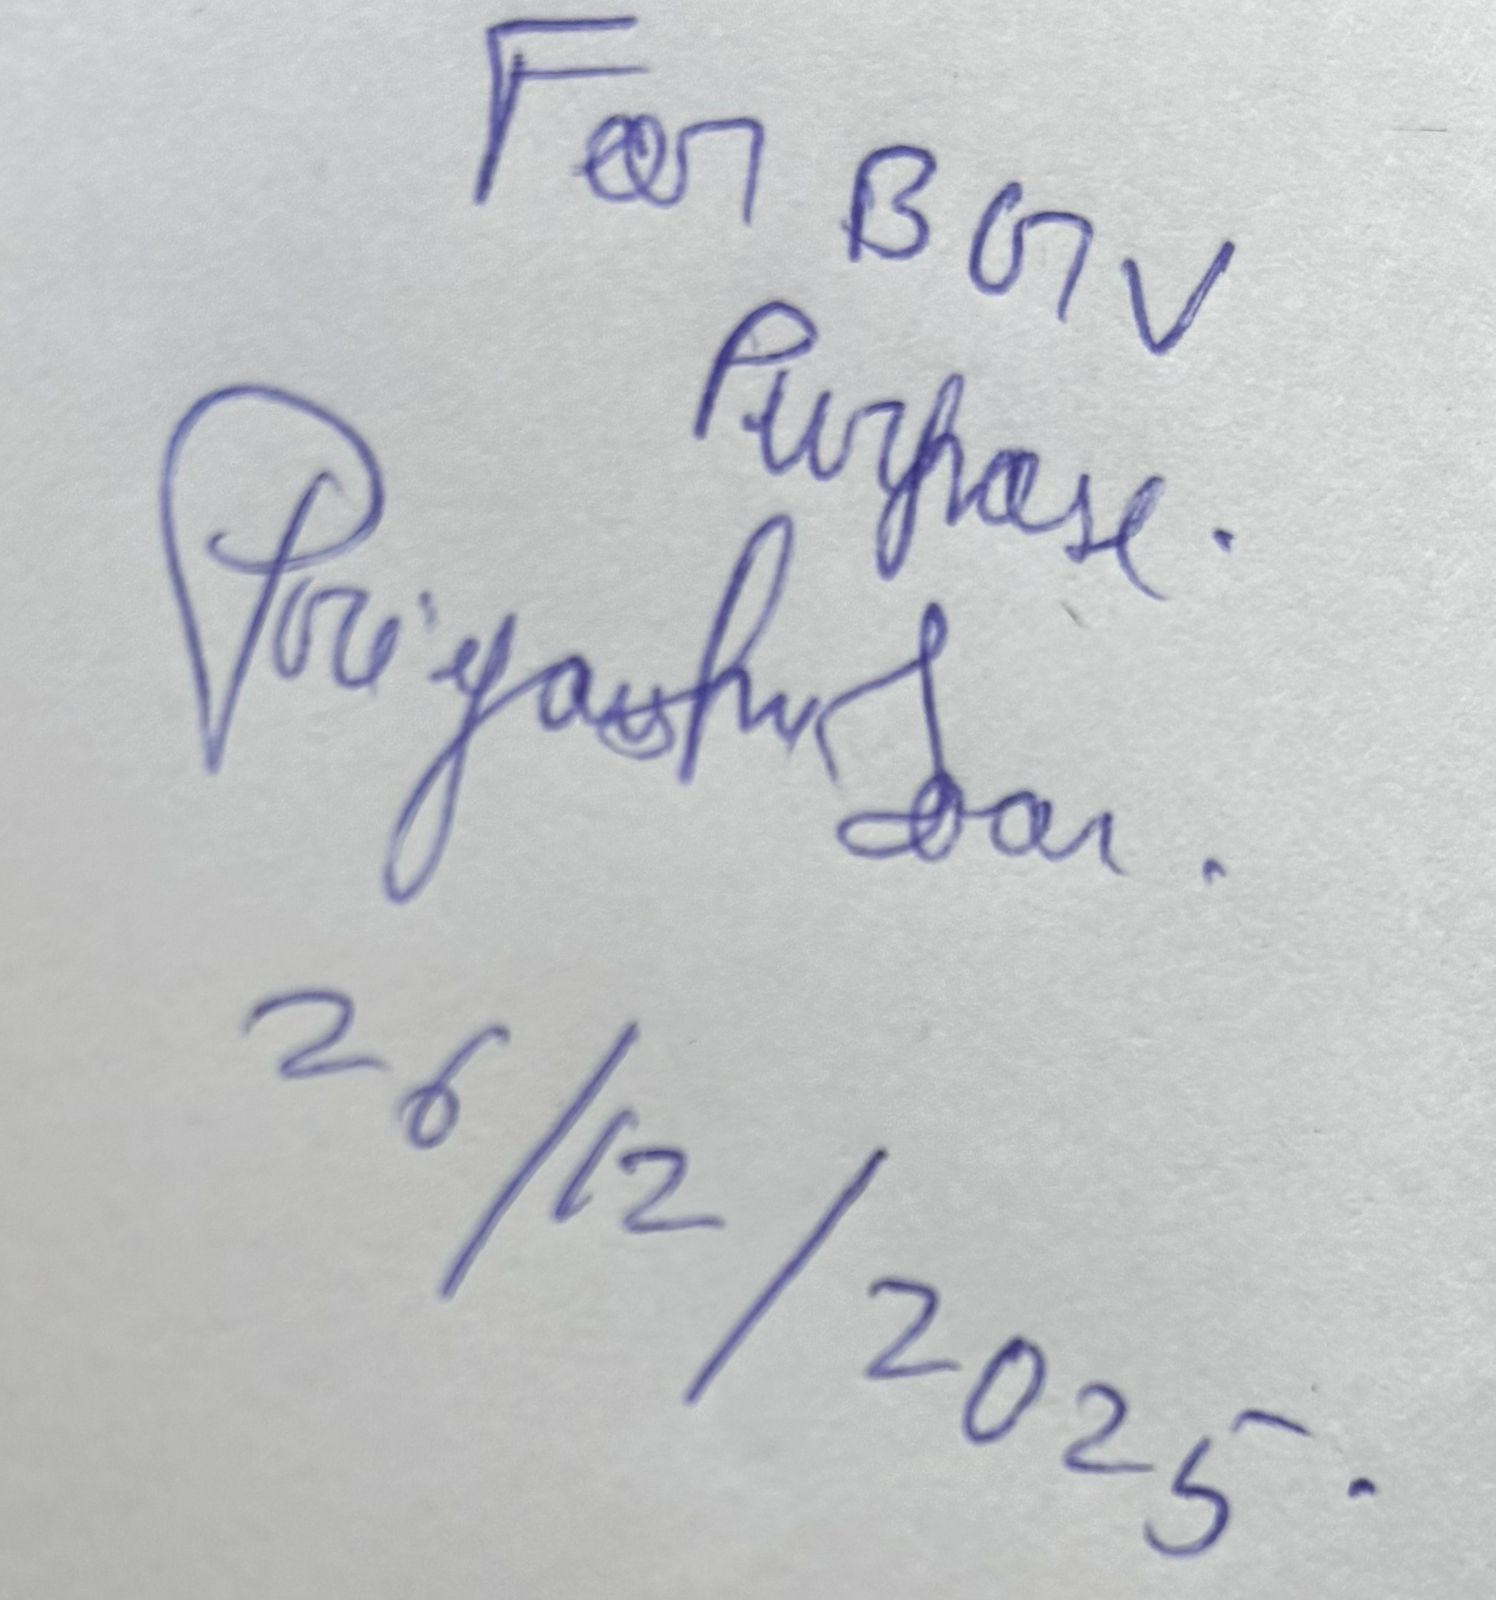 For BGV
Purpose.
Priyashu
26/12/2025.